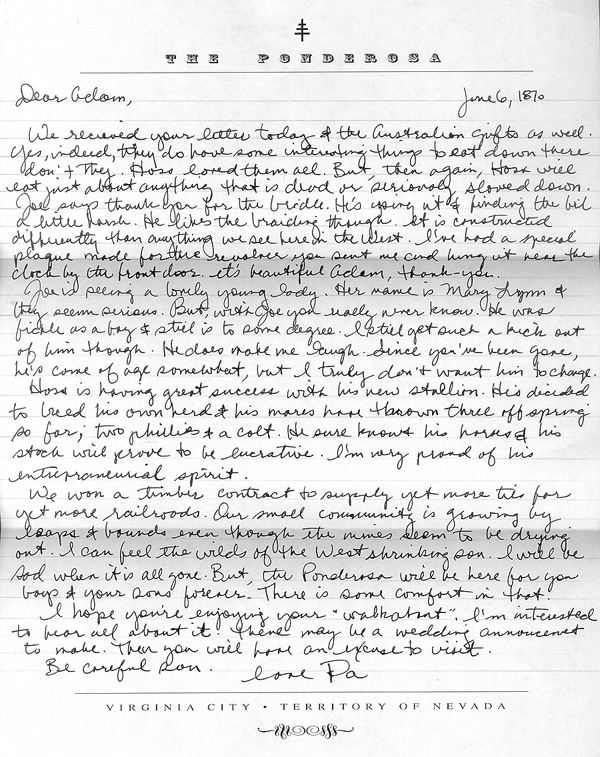 THE PONDEROSA
Dear Adam,
June 6, 1870
We recieved your letter today & the Australian gifts as well.
Yes, indeed, they do have some interesting things to eat down there
don't they. Hoss loved them all. But, then again, Hoss will
eat just about anything that is dead or seriously slowed down.
Joe says thank you for the bridle. He's using it & finding the bit
a little harsh. He likes the braiding though. It is constructed
differently than anything we see here in the West. I've had a special
plaque made for the revolver you sent me and hung it near the
clock by the front door. It's beautiful Adam, thank-you.
Joe is seeing a lovely young lady. Her name is Mary Lynn &
they seem serious. But, with Joe you really never know. He was
fickle as a boy & still is to some degree. I still get such a kick out
of him though. He does make me laugh. Since you've been gone,
he's come of age somewhat, but I truly don't want him to change.
Hoss is having great success with his new stallion. He's decided
to breed his own herd & his mares have thrown three off spring
so far; two phillies & a colt. He sure knows his horses & his
stock will prove to be lucrative. I'm very proud of his
entrepreneurial spirit.
We won a timber contract to supply yet more ties for
yet more railroads. Our small community is growing by
leaps & bounds even though the mines seem to be drying
out. I can feel the wilds of the West shrinking son. I will be
sad when it is all gone. But, the Ponderosa will be here for you
boys & your sons forever. There is some comfort in that.
I hope you're enjoying your "walkabout". I'm interested
to hear all about it. There may be a wedding announcment
to make. Then you will have an excuse to visit.
Be careful son.
Love Pa
VIRGINIA CITY • TERRITORY OF NEVADA